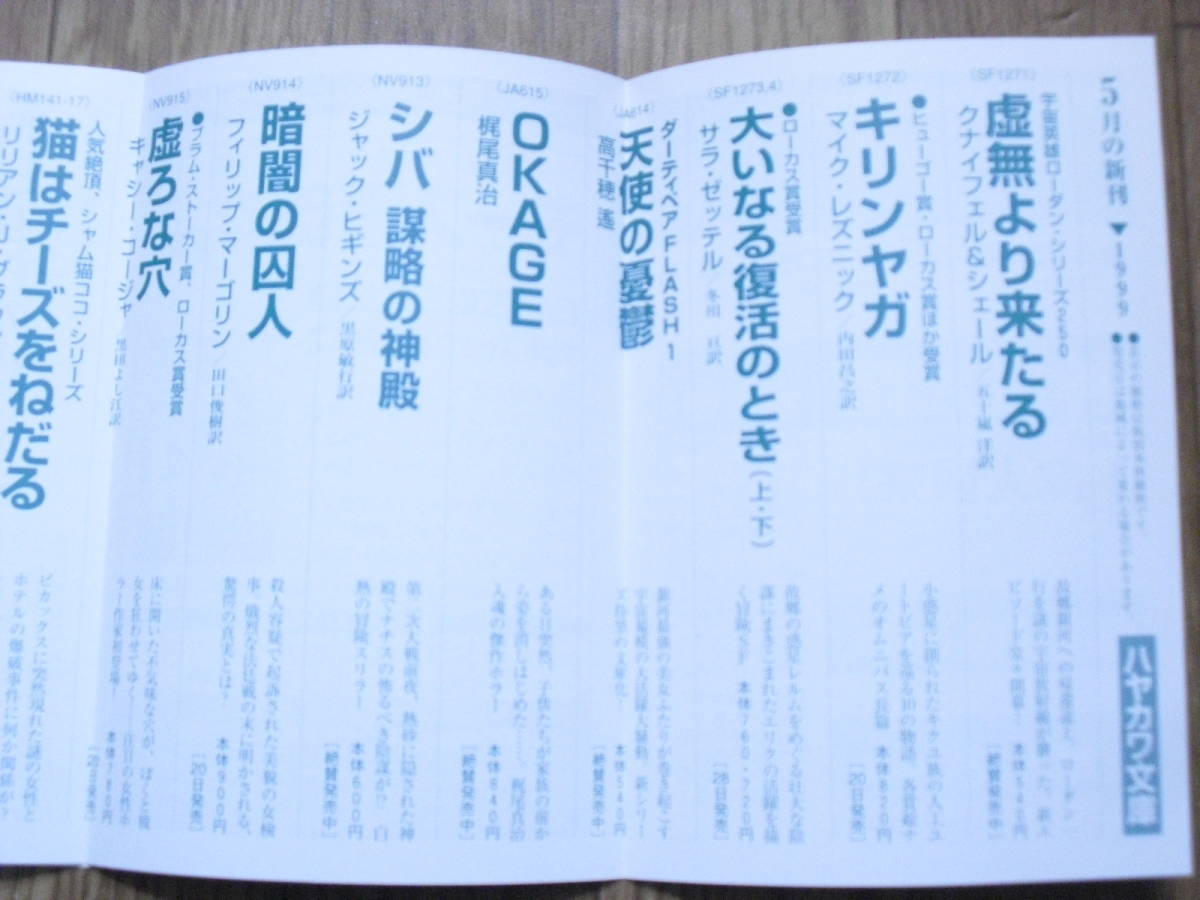 5月の新刊 ▼1999
ハヤカワ文庫
〈SF1271〉
宇宙英雄ローダン・シリーズ250
虚無より来たる
クナイフェル&シェール／五十嵐 洋訳
[絶賛発売中]
〈SF1272〉
●ヒューゴー賞・ローカス賞ほか受賞
キリンヤガ
マイク・レズニック／内田昌之訳
小惑星に創られたキクユ族の人工ユ
ートピアを語る10の物語。各賞総ナ
メのオムニバス長篇 本体820円
[20日発売]
〈SF1273,4〉
●ローカス賞受賞
大いなる復活のとき(上・下)
サラ・ゼッテル／冬川 亘訳
故郷の惑星レルムをめぐる壮大な陰
謀にまきこまれたエリクの活躍を描
く冒険SF 本体760・720円
[28日発売]
〈JA614〉
ダーティペアFLASH 1
天使の憂鬱
高千穂 遙
銀河最強の美女ふたりが巻き起こす
宇宙規模の大活躍大騒動。新シリー
ズ待望の文庫化！ 本体540円
[絶賛発売中]
〈JA615〉
OKAGE
梶尾真治
ある日突然、子供たちが家族の前か
ら姿を消しはじめた…… 梶尾真治
入魂の傑作ホラー 本体840円
[絶賛発売中]
〈NV913〉
シバ 謀略の神殿
ジャック・ヒギンズ／黒原敏行訳
第二次大戦前夜、熱砂に隠された神
殿でナチスの怖るべき陰謀が!? 白
熱の冒険スリラー 本体600円
[絶賛発売中]
〈NV914〉
暗闇の囚人
フィリップ・マーゴリン／田口俊樹訳
殺人容疑で起訴された美貌の女検
事。熾烈な法廷戦の末に明かされる、
驚愕の真実とは？ 本体900円
[20日発売]
〈NV915〉
●ブラム・ストーカー賞、ローカス賞受賞
虚ろな穴
キャシー・コージャ／黒田よし江訳
床に開いた不気味な穴が、ぼくと彼
女を狂わせてゆく――注目の女性ホ
ラー作家初登場！ 本体780円
[20日発売]
〈HM141-17〉
人気絶頂、シャム猫ココ・シリーズ
猫はチーズをねだる
リリアン・J・ブラウン
ピカックスに突然現れた謎の女性と
ホテルの爆破事件に何か関係が？